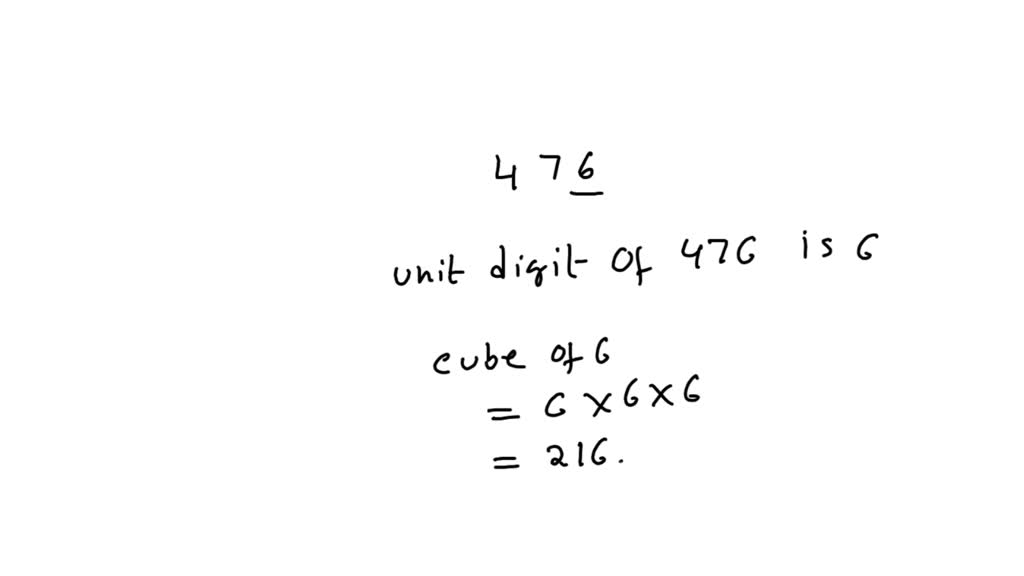 476
unit digit of 476 is 6
cube of 6
= 6 × 6 × 6
= 216.